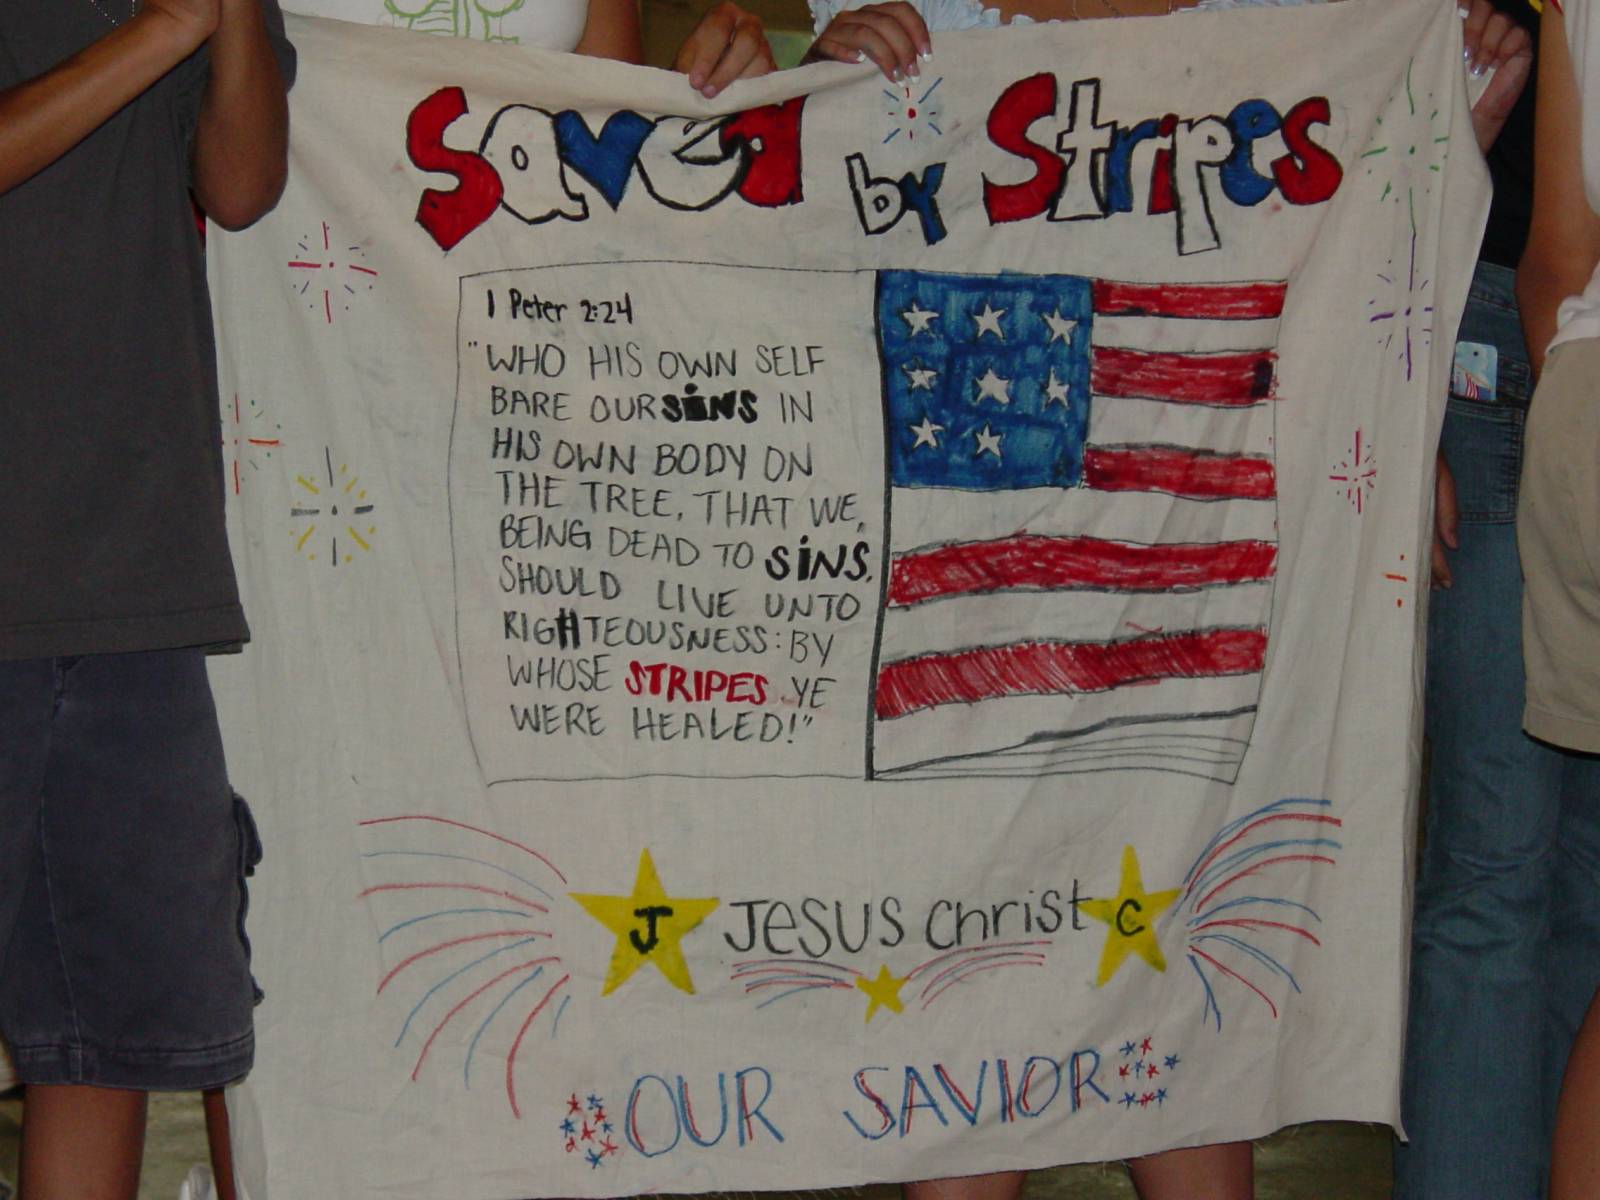 Saved by Stripes
1 Peter 2:24
"WHO HIS OWN SELF
BARE OUR SiNS IN
HIS OWN BODY ON
THE TREE, THAT WE,
BEING DEAD TO SiNS,
SHOULD LIVE UNTO
RIGHTEOUSNESS: BY
WHOSE STRIPES YE
WERE HEALED!"
J Jesus Christ C
OUR SAVIOR